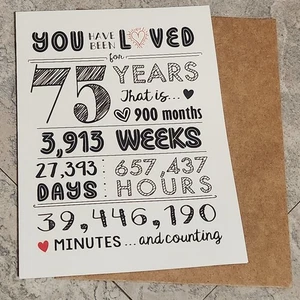 YOU HAVE BEEN LOVED
for
75 YEARS
That is...
900 months
3,913 WEEKS
27,393 DAYS
657,437 HOURS
39,446,190
MINUTES ...and counting